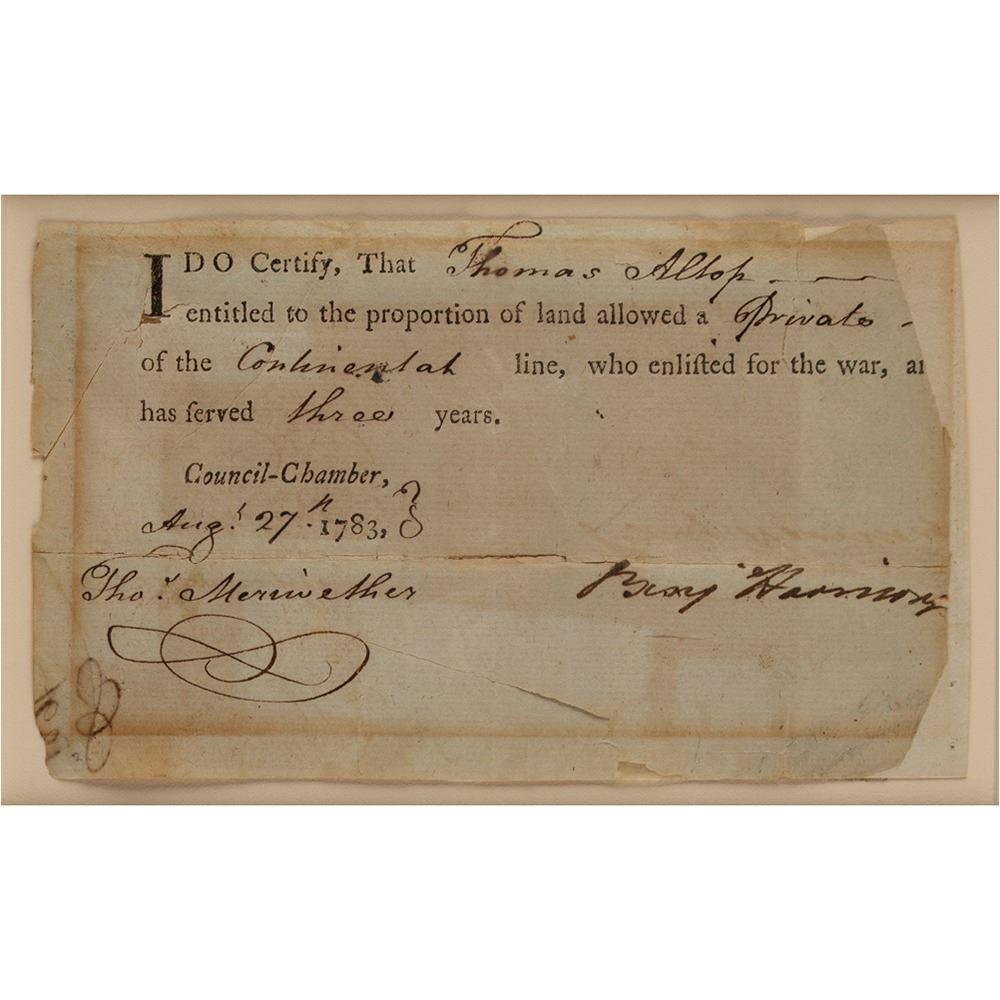 I DO Certify, That Thomas Alsop
entitled to the proportion of land allowed a Private
of the Continental line, who enliſted for the war, an
has ſerved three years.
Council-Chamber,
Augt. 27th. 1783,
Thos. Meriwether
Benj Harrison